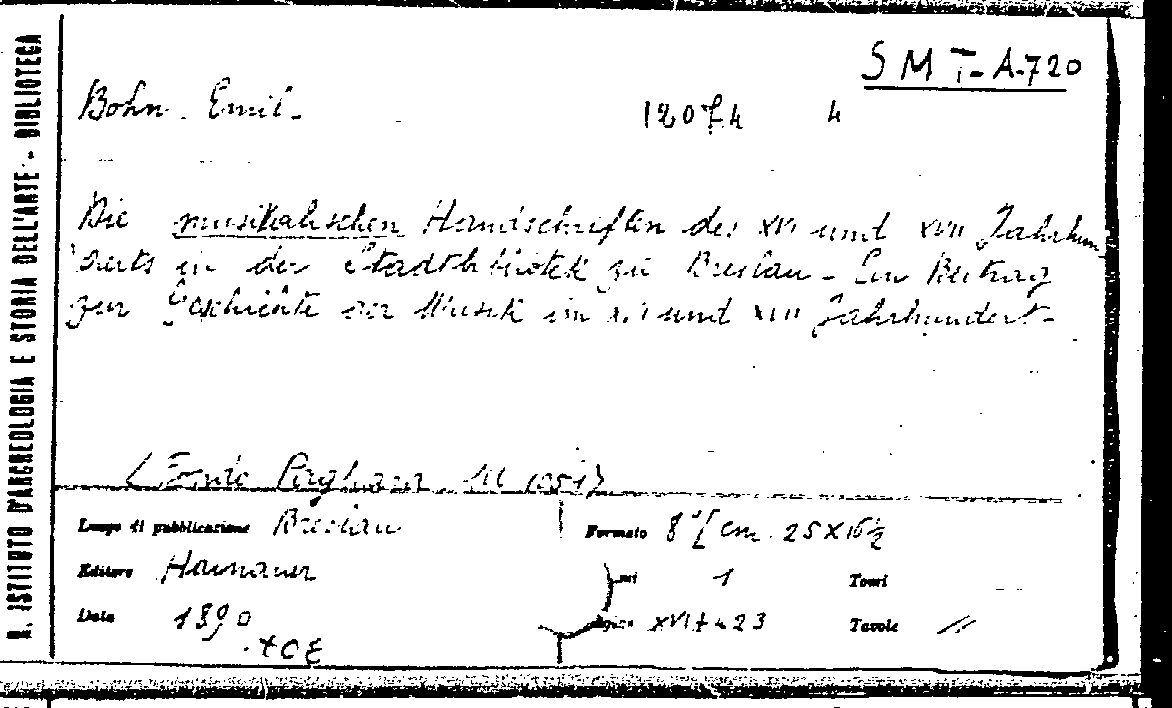 R. ISTITUTO D'ARCHEOLOGIA E STORIA DELL'ARTE - BIBLIOTECA
SMT-A-720
Bohn Emil-
12074 4
Die musikalischen Handschriften des XVI und XVII Jahrhun
derts in der Stadtbibliotek zu Breslau - Ein Beitrag
zur Geschichte der Musik im XVI und XVII Jahrhundert-
(Fondo Pagliara M 1051)
Luogo di pubblicazione Breslau
Formato 8° [cm. 25x16½
Editore Hainauer
1 Tomi
Data 1890
XVI+423 Tavole //